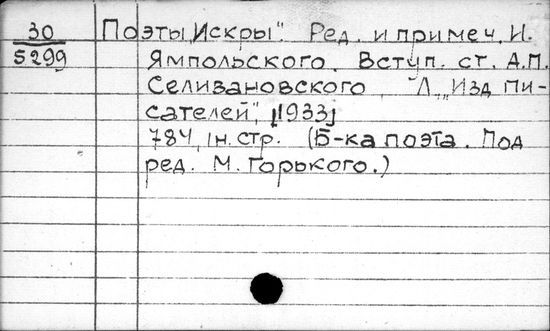 30 Поэты „Искры". Ред. и примеч. И.
5299 Ямпольского. Вступ. ст. А.П.
Селивановского. "Л., "Изд. пи-
сателей", [1933]
784, 1н. стр. (Б-ка поэта. Под
ред. М. Горького.)